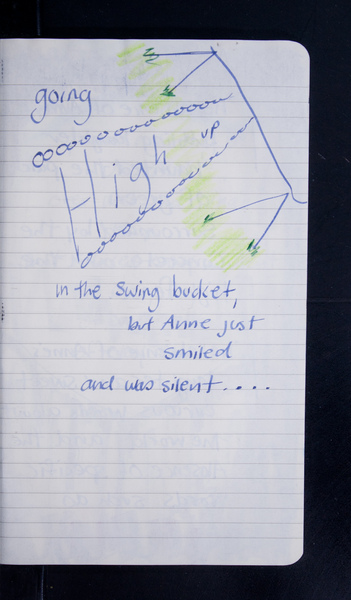 going
High
up
in the swing bucket,
but Anne just
smiled
and was silent....